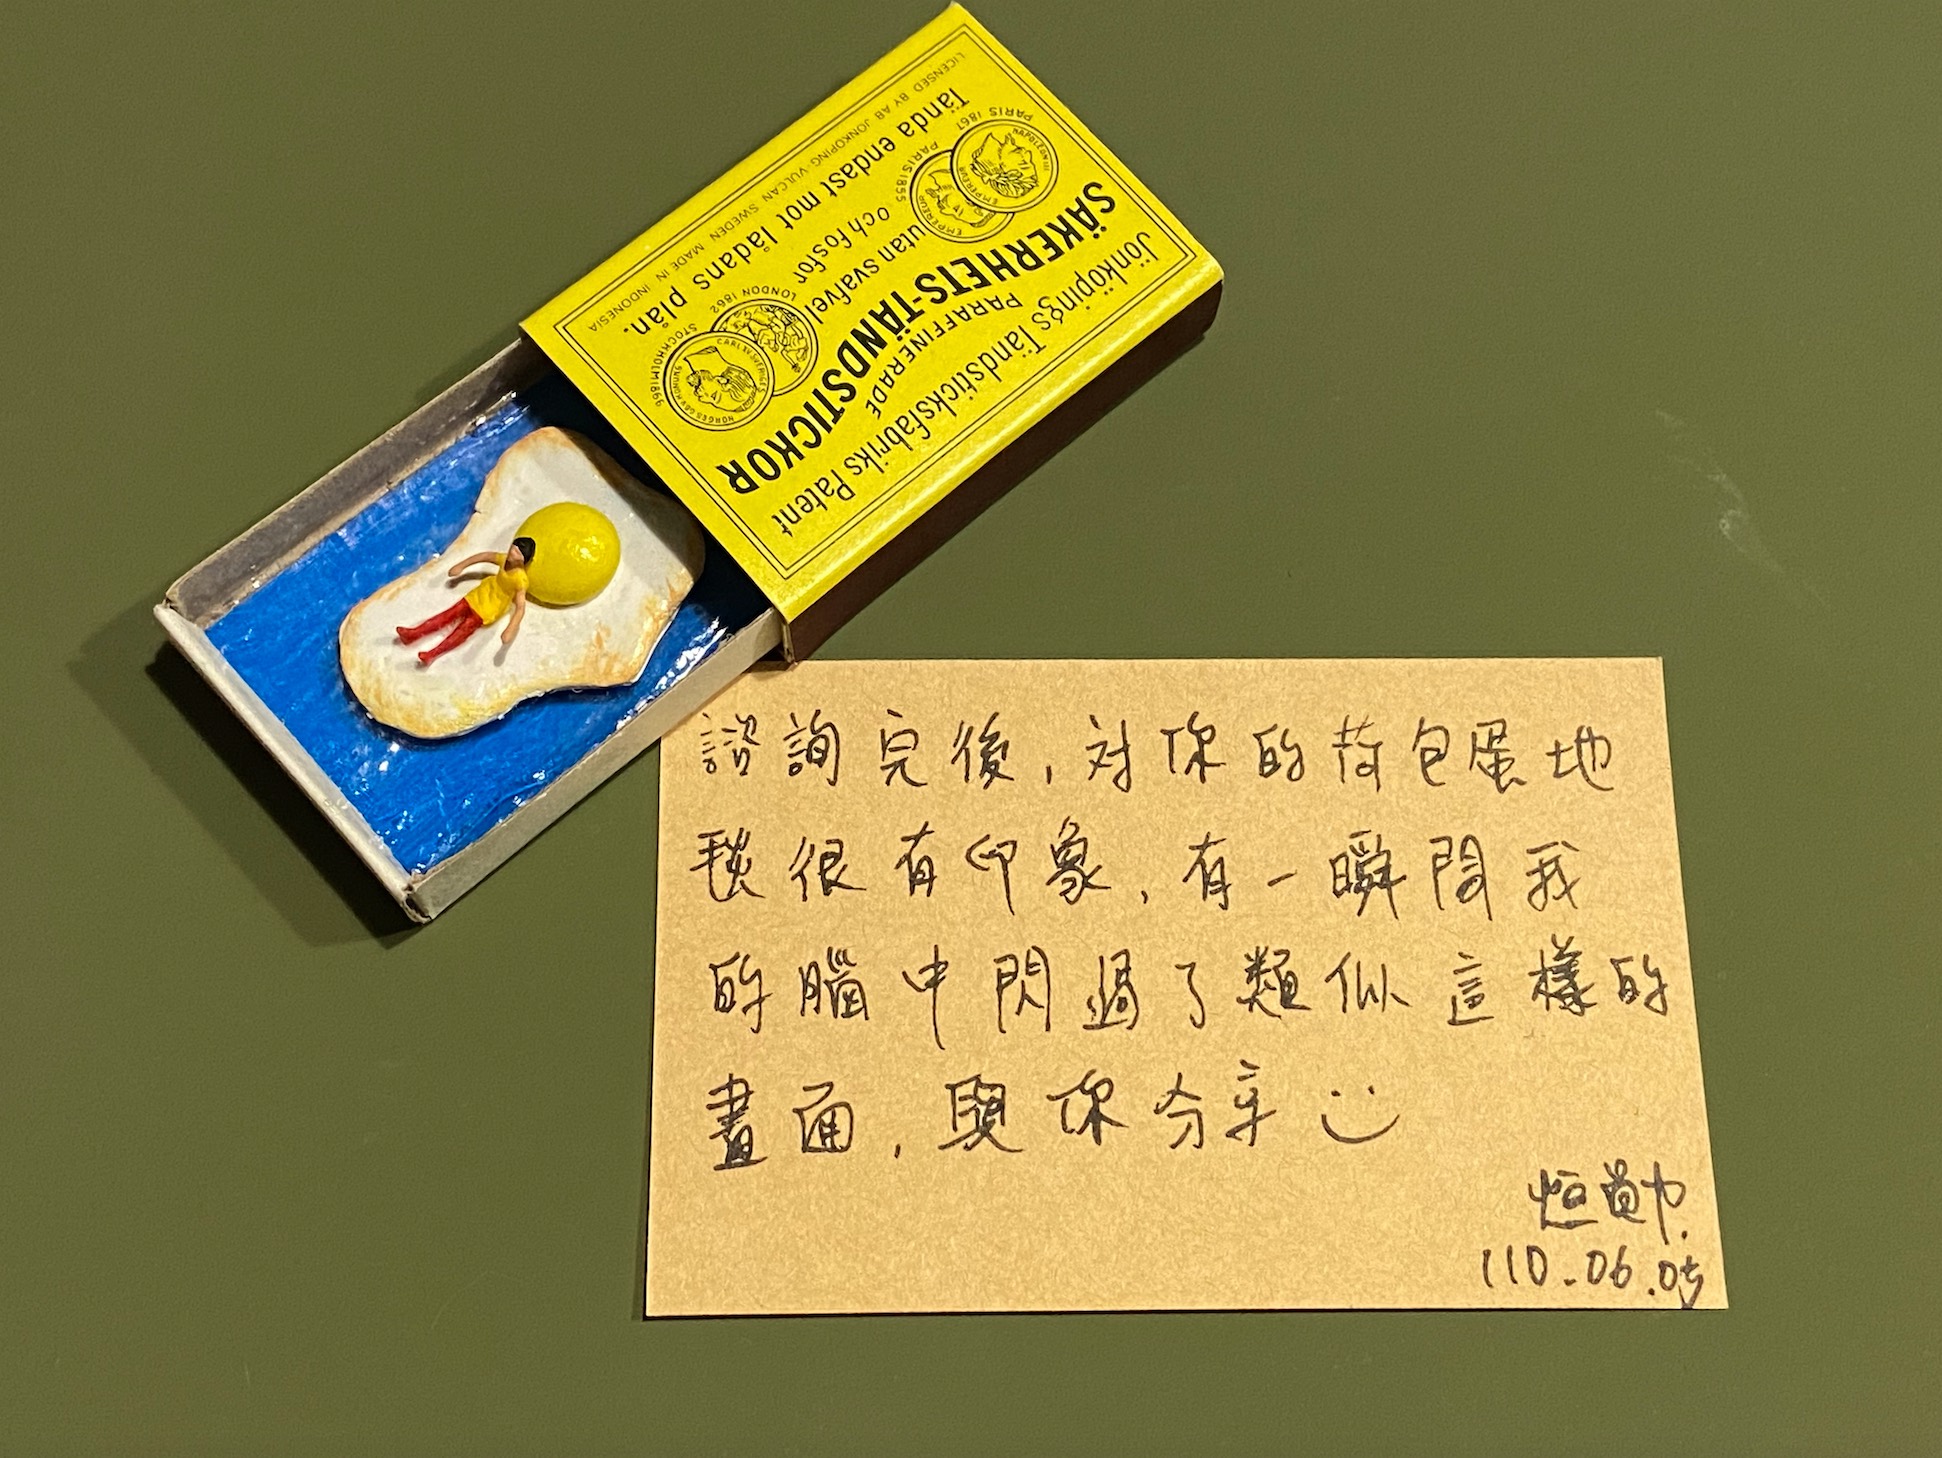 Jönköpings Tändsticksfabriks Patent
PARAFFINERADE
SÄKERHETS-TÄNDSTICKOR
utan svafvel
Och fosfor
PARIS 1867
PARIS 1855
LONDON 1862
STOCKHOLM 1866
NAPOLEON III
EMPEREUR
EMPEREUR
Tända endast mot lådans plån.
LICENSED BY AB JONKOPING-VULCAN SWEDEN MADE IN INDONESIA
諮詢完後,对你的荷包蛋地
毯很有印象,有一瞬間我
的腦中閃過了類似這樣的
畫面,與你分享
恒勛.
110.06.05